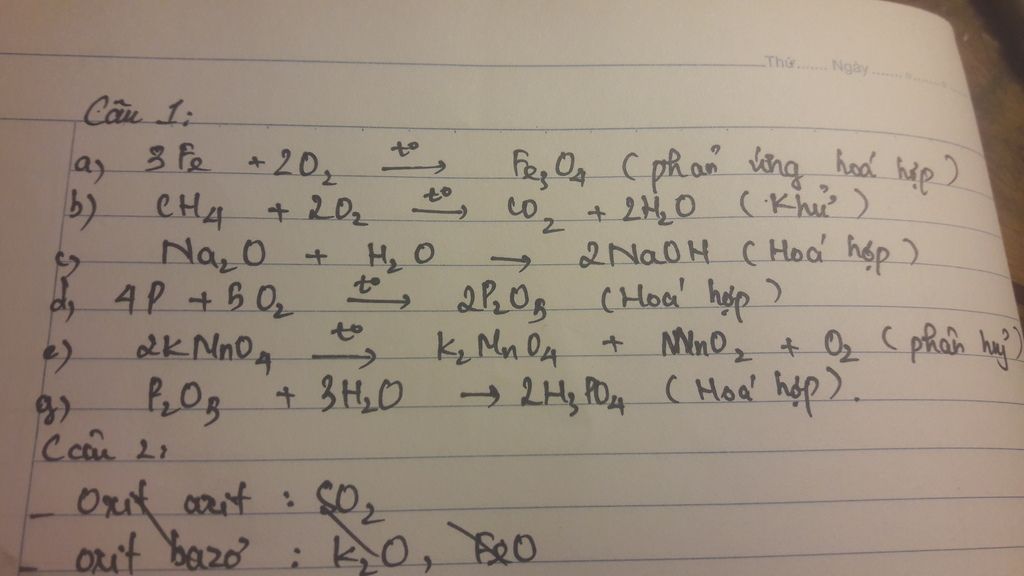 Thứ....... Ngày.............
Câu 1:
a) 3Fe + 2O₂ –t°→ Fe₃O₄ (phản ứng hoá hợp)
b) CH₄ + 2O₂ –t°→ CO₂ + 2H₂O (Khử)
c) Na₂O + H₂O → 2NaOH (Hoá hợp)
d) 4P + 5O₂ –t°→ 2P₂O₅ (Hoá hợp)
e) 2KMnO₄ –t°→ K₂MnO₄ + MnO₂ + O₂ (phân huỷ)
g) P₂O₅ + 3H₂O → 2H₃PO₄ (Hoá hợp).
Ccâu 2:
– Oxit axit : SO₂
– oxit bazơ : K₂O, FeO